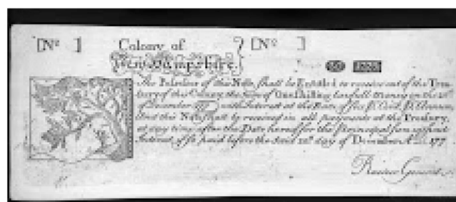 [No ] Colony of [No ]
New Hampshire.
The Possessor of this Note shall be Entitled to receive out of the Trea-
sury of this Colony, the Sum of One Shilling Lawfull Money on the 20th
of December with Interest at the Rate of Six P. Cent. P. Annum
And this Note shall be received in all payments at the Treasury,
at any time after the Date hereof for the Principal sum without
Interest if so paid before the said 20th day of December A 177
Receiver General